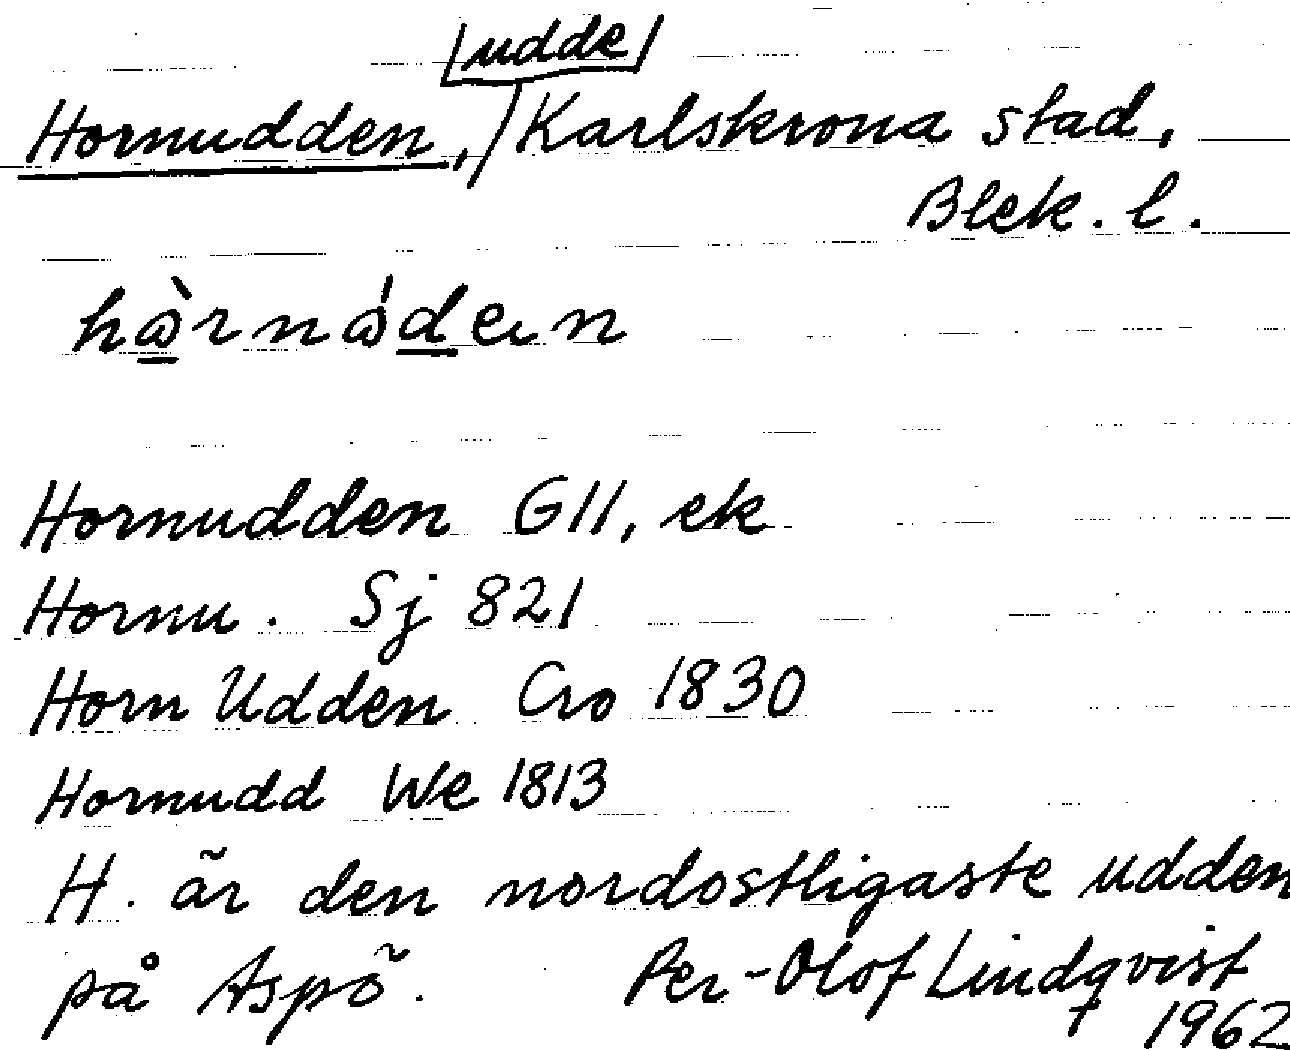 udde
Hornudden, Karlskrona stad,
Blek. l.
Hornudden GII, ek
Hornu. Sj 821
Horn Udden Cro 1830
Hornudd We 1813
H. är den nordostligaste udden
på Aspö. Per-Olof Lindqvist
1962